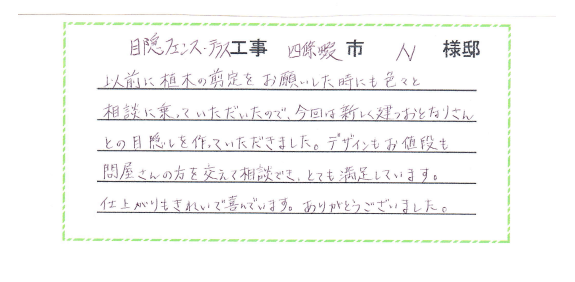 目隠フェンス・テラス工事 四條畷市 N 様邸
以前に植木の剪定をお願いした時にも色々と
相談に乗っていただいたので、今回は新しく建つおとなりさん
との目隠しを作っていただきました。デザインもお値段も
問屋さんの方を交えて相談でき、とても満足しています。
仕上がりもきれいで喜んでいます。ありがとうございました。